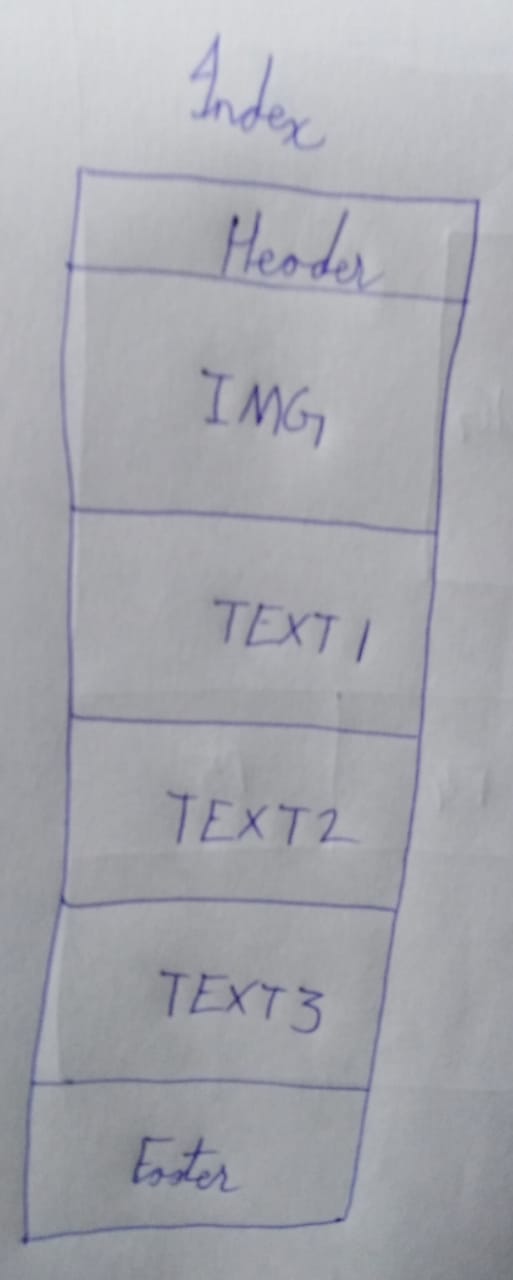 Index
Header
IMG
TEXT 1
TEXT2
TEXT3
Footer